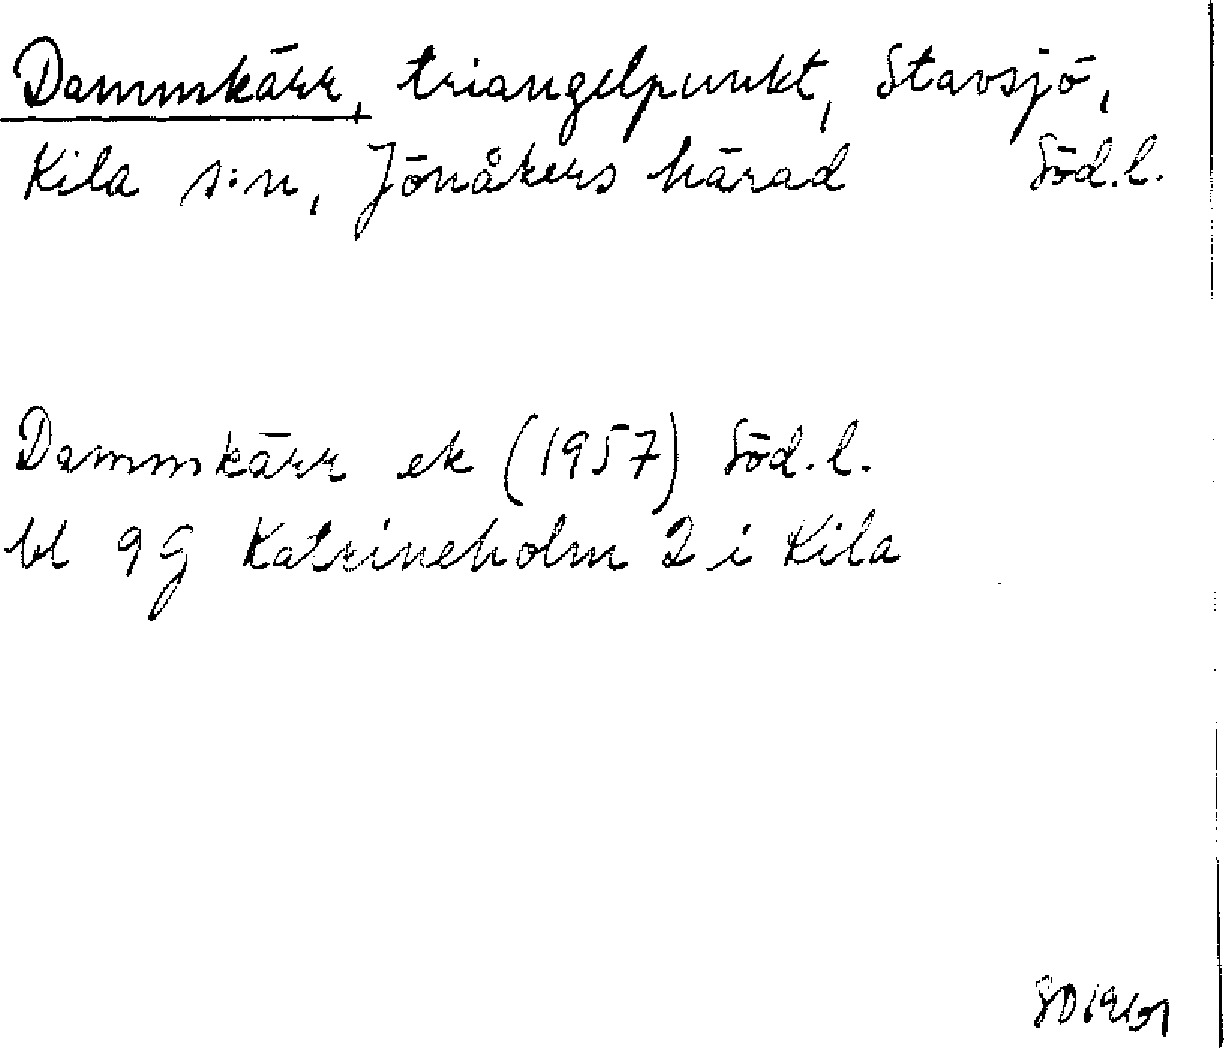 Dammkärr, triangelpunkt, Stavsjö,
Kila s:n, Jönåkers härad Söd.l.
Dammkärr ek (1957) Söd.l.
bl 9G Katrineholm 2 i Kila